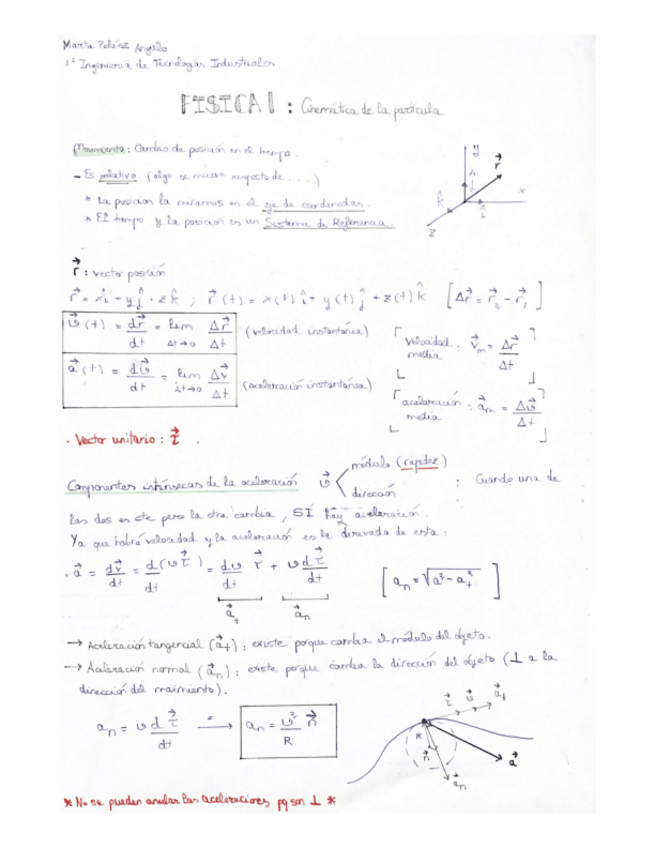 Marta Peláez Angulo
1º Ingeniería de Tecnologías Industriales
FISICA I : Cinemática de la partícula
Movimiento: Cambio de posición en el tiempo.
- Es relativo (algo se mueve respecto de ...)
* La posición la miramos en el eje de coordenadas.
* El tiempo y la posición es un Sistema de Referencia.
y
r⃗
ĵ
k̂
î
x
z
r⃗ : vector posición
r⃗ = xî + yĵ + zk̂ ; r⃗(t) = x(t)î + y(t)ĵ + z(t)k̂ [Δr⃗ = r⃗₂ - r⃗₁]
v⃗(t) = dr⃗/dt = lim Δt→0 Δr⃗/Δt (velocidad instantánea) [Velocidad media : v⃗m = Δr⃗/Δt]
a⃗(t) = dv⃗/dt = lim Δt→0 Δv⃗/Δt (aceleración instantánea) [aceleración media : a⃗m = Δv⃗/Δt]
. Vector unitario : τ⃗ .
Componentes intrínsecas de la aceleración v⃗ < módulo (rapidez) dirección : Cuando una de
las dos es cte pero la otra cambia, SÍ hay aceleración.
Ya que habrá velocidad y la aceleración es la derivada de esta :
. a⃗ = dv⃗/dt = d(vτ⃗)/dt = dv/dt τ⃗ + v dτ⃗/dt [an = √(a² - at²)]
a⃗t a⃗n
→ Aceleración tangencial (a⃗t) : existe porque cambia el módulo del objeto.
→ Aceleración normal (a⃗n) : existe porque cambia la dirección del objeto (⊥ a la
dirección del moimiento).
an = v dτ⃗/dt → an = v²/R n⃗
τ⃗ v⃗ a⃗t
R
n⃗
a⃗
a⃗n
* No se pueden anular las aceleraciones pq son ⊥ *